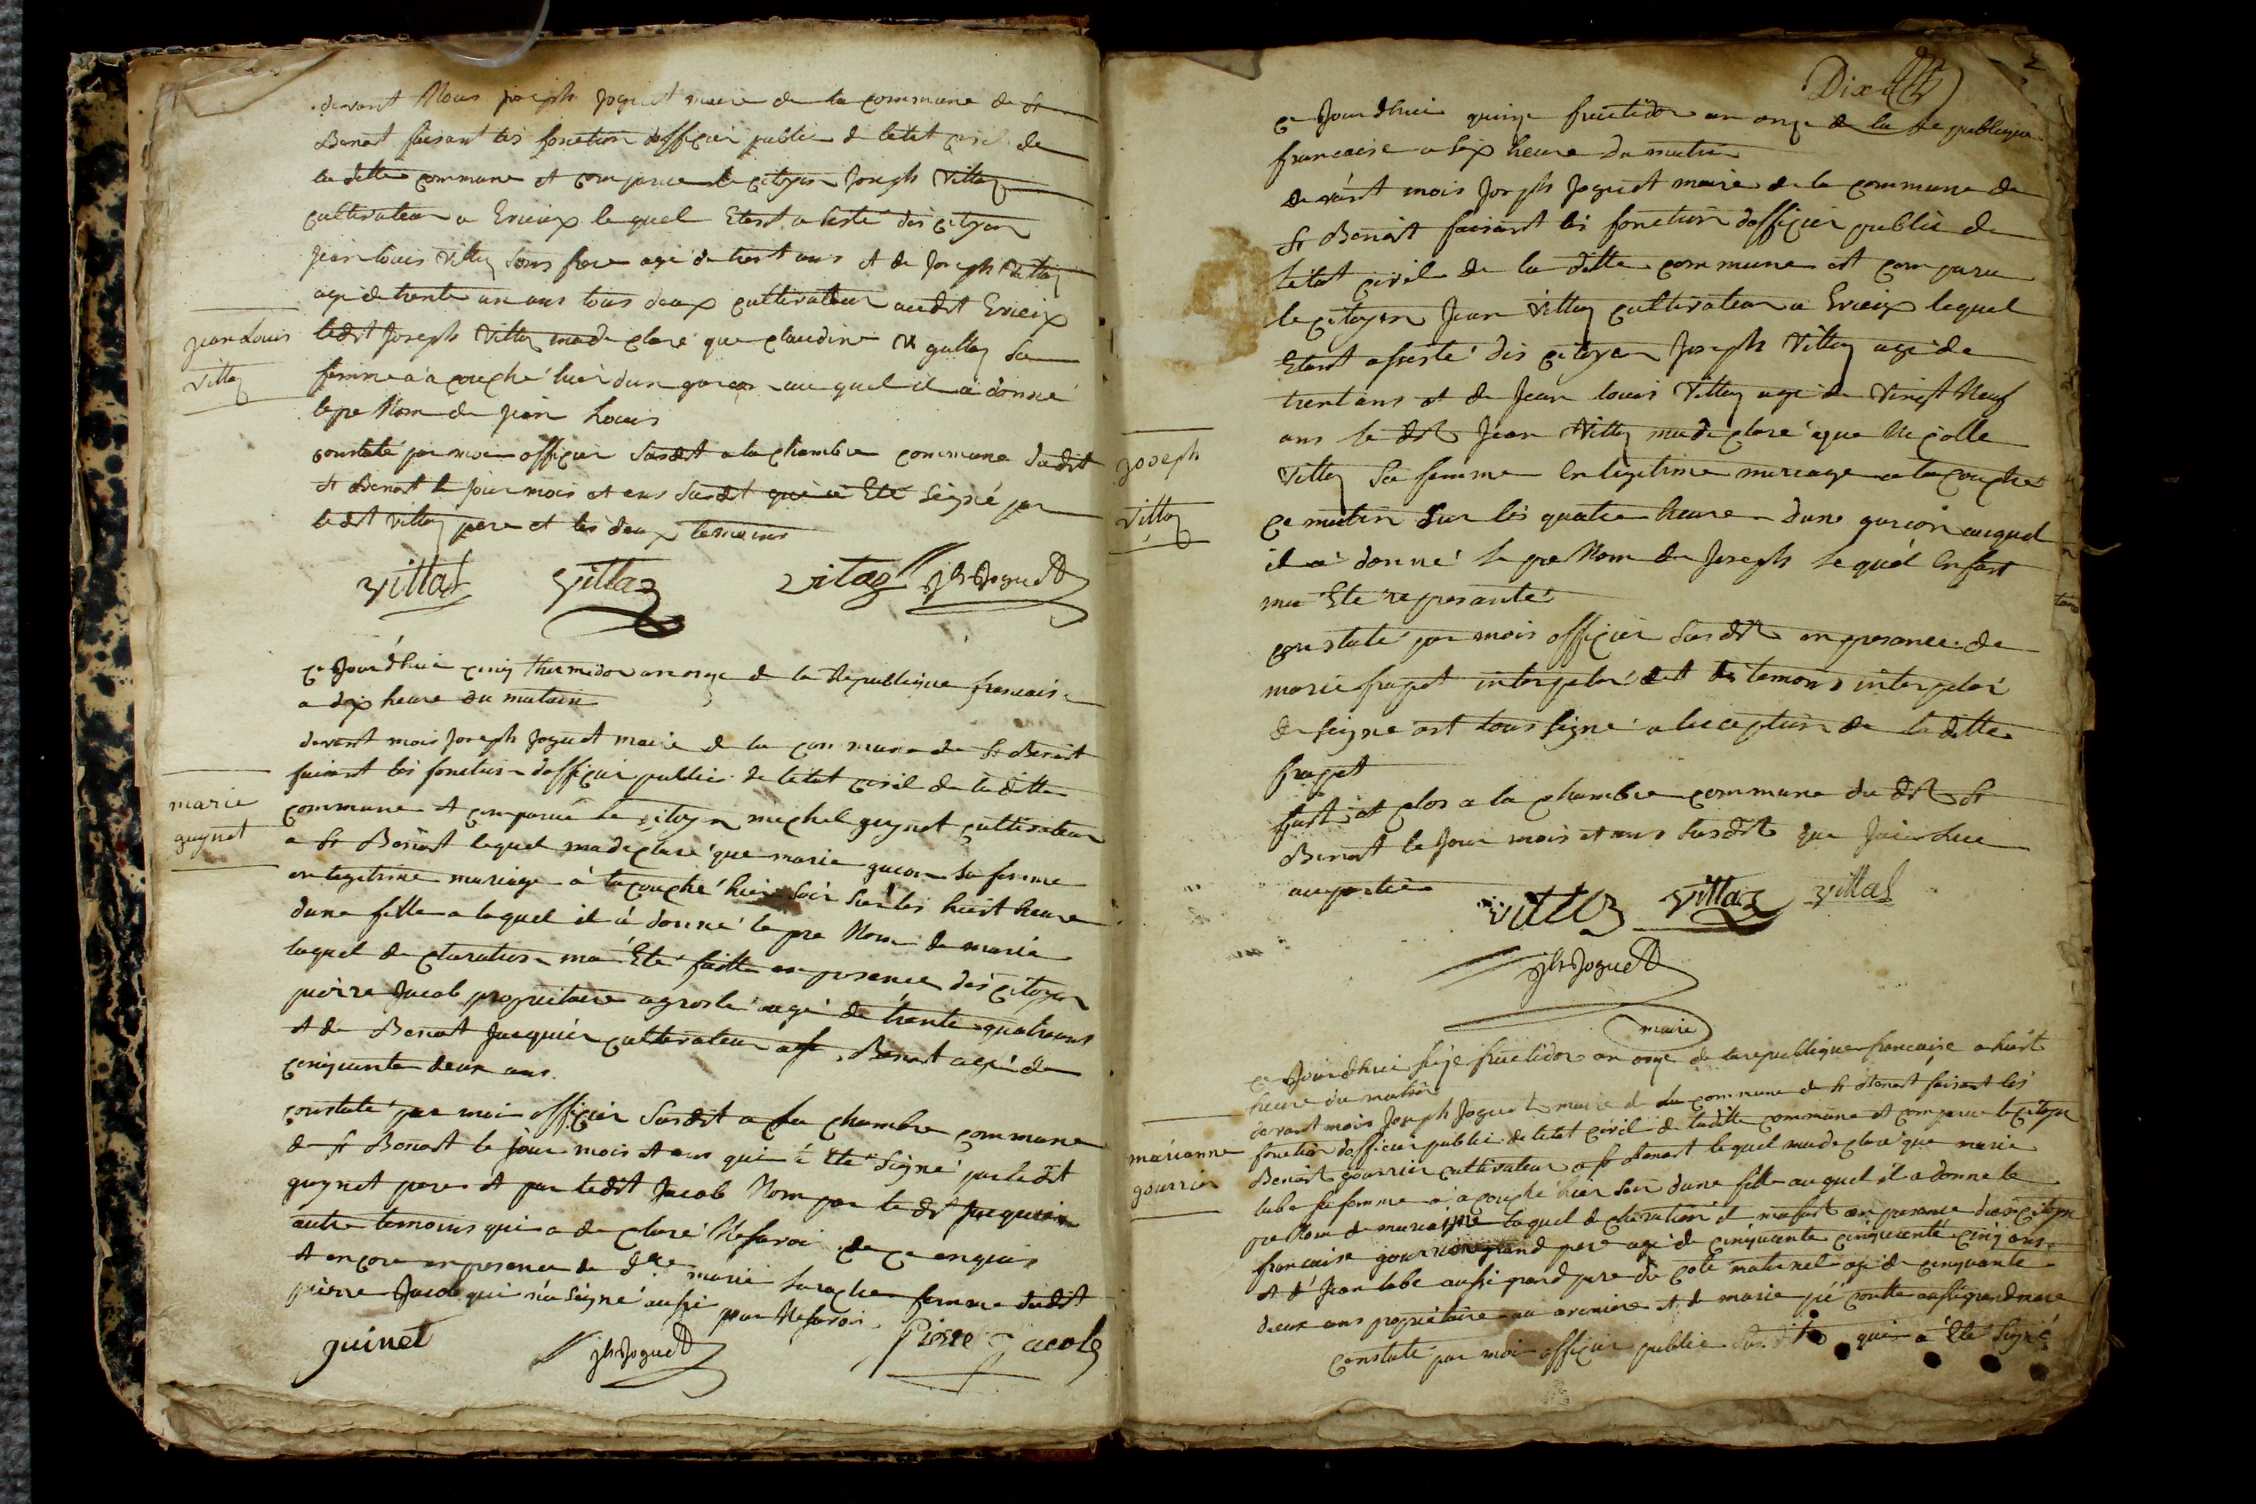 devant Nous joseph joguet maire de la commune de St
Benoit faisant les fonction dofficier public de letat civil de
la ditte commune est comparue le citoyen joseph Villaz
cultivateur a Evieux lequel Etant asisté des citoyen
jean louis villaz sons frere agé de trent ans et de joseph villaz
agé de trente un ans tous deux cultivateur audit Evieix
jean Louis
villaz
ledit joseph villaz ma de claré que claudine gullaz sa
femme a a couché hier dun garcon au quel il a donné
le pre Nom de jean Louis
constaté par moi officier susdit a la chambre commune dudit
St Benoit le jour mois et ans susdit qui a Eté signé par
ledit villaz pere et les deux temoins
Villaz villaz vitaz jh Joguet
ce Jourdhui cinq thermidor an onze de la Republique francaise
a dix heure du matin
devant mois joseph joguet maire de la commune de St Benoit
faisant les fonction dofficier public de letat civil de la ditte
marie
guynet
commune et comparue le citoyen michel guynet cultivateur
a St Benoit lequel ma declaré que marie gucon sa femme
en legitime mariage à lacouché hier soir sur les huit heure
dune fille a laquel il à donné le pre Nom de marie
laquel de claration ma Eté faitte en presence des citoyen
pierre Jacob propriétaire agroslé agé de trente quatre ans
et de Benoit Jacquier cultivateur a St Benoit agé de
cinquante deux ans
constaté par moi officier susdit a la chambre commune
de St Benoit le jour mois et ans qui à Eté signé par ledit
guynet pere et par ledit Jacob Nom par le dit Jacquier
autre temoins qui a de claré Nesavoir de ce enquis
et encore en presence de dlle marie femme dudit
pierre Jacob qui n'a signé aussi pour Nesavoir
guinet jh Joguet Pierre Jacob
Dix
2
ce Jourdhui quinze fructidor an onze de la Republique
francaise a six heure du matin
devant mois Joseph Joguet maire de la commune de
St Benoit faisant les fonction dofficier public de
letat civil de la ditte commune est comparu
le citoyen Jean villaz cultivateur a Evieix lequel
Etant assisté des citoyen Joseph Villaz agé de
trent ans et de Jean louis villaz agé de vingt Neuf
ans le dit Jean villaz ma de claré que Nicolle
joseph
villaz
villaz sa femme en legitime mariage a lacouché
ce matin sur les quatre heure dune garcon auquel
il a donné le pre Nom de Joseph le quel Enfant
ma Eté represanté
constaté par mois officier susdit en presance de
marie fraget interpelé det des temoins interpelé
de signe ont tous signé a lecception de la ditte
fraget
fait et clos a la chambre commune du dit St
Benoit le Jour mois et ans susdit que Jai lue
au partie
villaz villaz villaz
jh Joguet
maire
ce Jourdhui seize fructidor an onze de la republique francaise a huit
heure du matin
devant mois Joseph Joguet maire de la commune de St Benoit faisant les
fonction dofficier public de letat civil de laditte commune est comparue le citoyen
marianne
gourrier
Benoit gourrier cultivateur a St Benoit lequel ma de claré que marie
labe sa femme a a couché hier soir dune fille auquel il a donné le
pre Nom de marianne laquel de claration et ma fait en presance du citoyen
francaise gourrier grand pere agé de cinquante cinquante cinq ans
et de Jean labe aussi grand pere du coté maternel agé de cinquante
deux ans propriétaire au avenieres et de marie aussi grand mere
constaté par moi officier public susdit qui a Eté signé